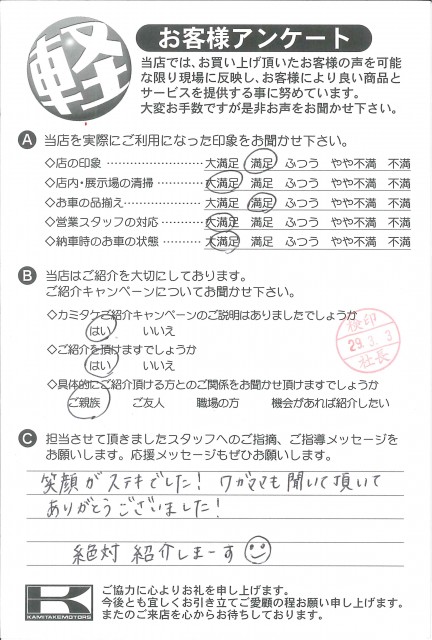 軽
お客様アンケート
当店では、お買い上げ頂いたお客様の声を可能
な限り現場に反映し、お客様により良い商品と
サービスを提供する事に努めています。
大変お手数ですが是非お声をお聞かせ下さい。
A 当店を実際にご利用になった印象をお聞かせ下さい。
◇店の印象 …………………… 大満足 満足 ふつう やや不満 不満
◇店内・展示場の清掃 ………… 大満足 満足 ふつう やや不満 不満
◇お車の品揃え ………………… 大満足 満足 ふつう やや不満 不満
◇営業スタッフの対応 ………… 大満足 満足 ふつう やや不満 不満
◇納車時のお車の状態 ………… 大満足 満足 ふつう やや不満 不満
B 当店はご紹介を大切にしております。
ご紹介キャンペーンについてお聞かせ下さい。
◇カミタケご紹介キャンペーンのご説明はありましたでしょうか
はい いいえ
◇ご紹介を頂けますでしょうか
はい いいえ
◇具体的にご紹介頂ける方とのご関係をお聞かせ頂けますでしょうか
ご親族 ご友人 職場の方 機会があれば紹介したい
検印
29.3.3
社長
C 担当させて頂きましたスタッフへのご指摘、ご指導メッセージを
お願いします。応援メッセージもぜひお願いします。
笑顔がステキでした! ワガママも聞いて頂いて
ありがとうございました!
絶対 紹介しまーす
K
KAMITAKEMOTORS
ご協力に心よりお礼を申し上げます。
今後とも宜しくお引き立てご愛顧の程お願い申し上げます。
またのご来店を心からお待ちしております。